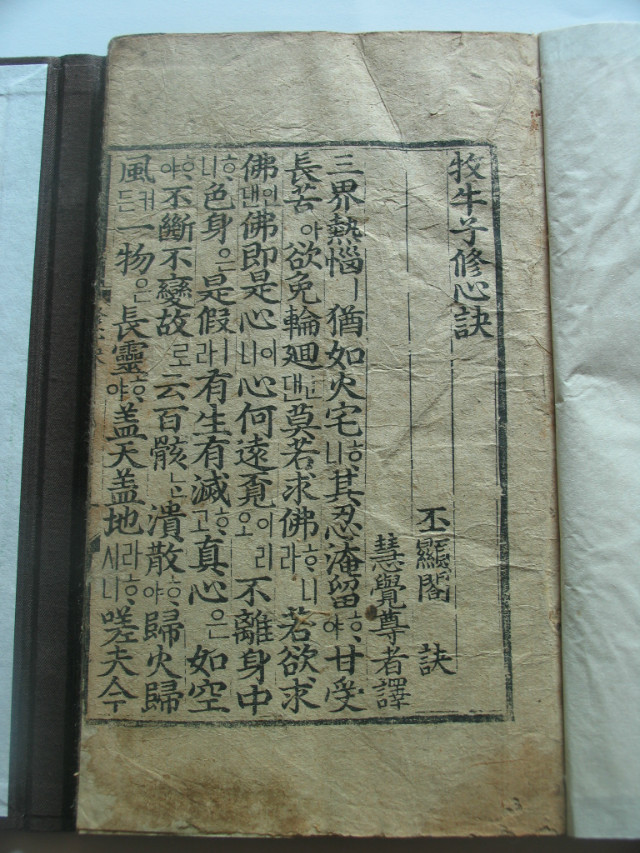 牧牛子修心訣
丕顯閤 訣
慧覺尊者譯
三界熱惱ㅣ猶如火宅ᄒᆞ니其忍淹留ᄒᆞ야甘受
長苦아欲免輪廻ᅟᅵᆫ댄莫若求佛ᄒᆞ니라若欲求
佛인댄佛即是心이니心何遠覓이리오不離身中
ᄒᆞ니色身은是假ㅣ라有生有滅ᄒᆞ고真心은如空
ᄒᆞ야不斷不變故로云百骸ᄂᆞᆫ潰散ᄒᆞ야歸火歸
風커든一物은長靈ᄒᆞ야盖天盖地라ᄒᆞ시니嗟夫今